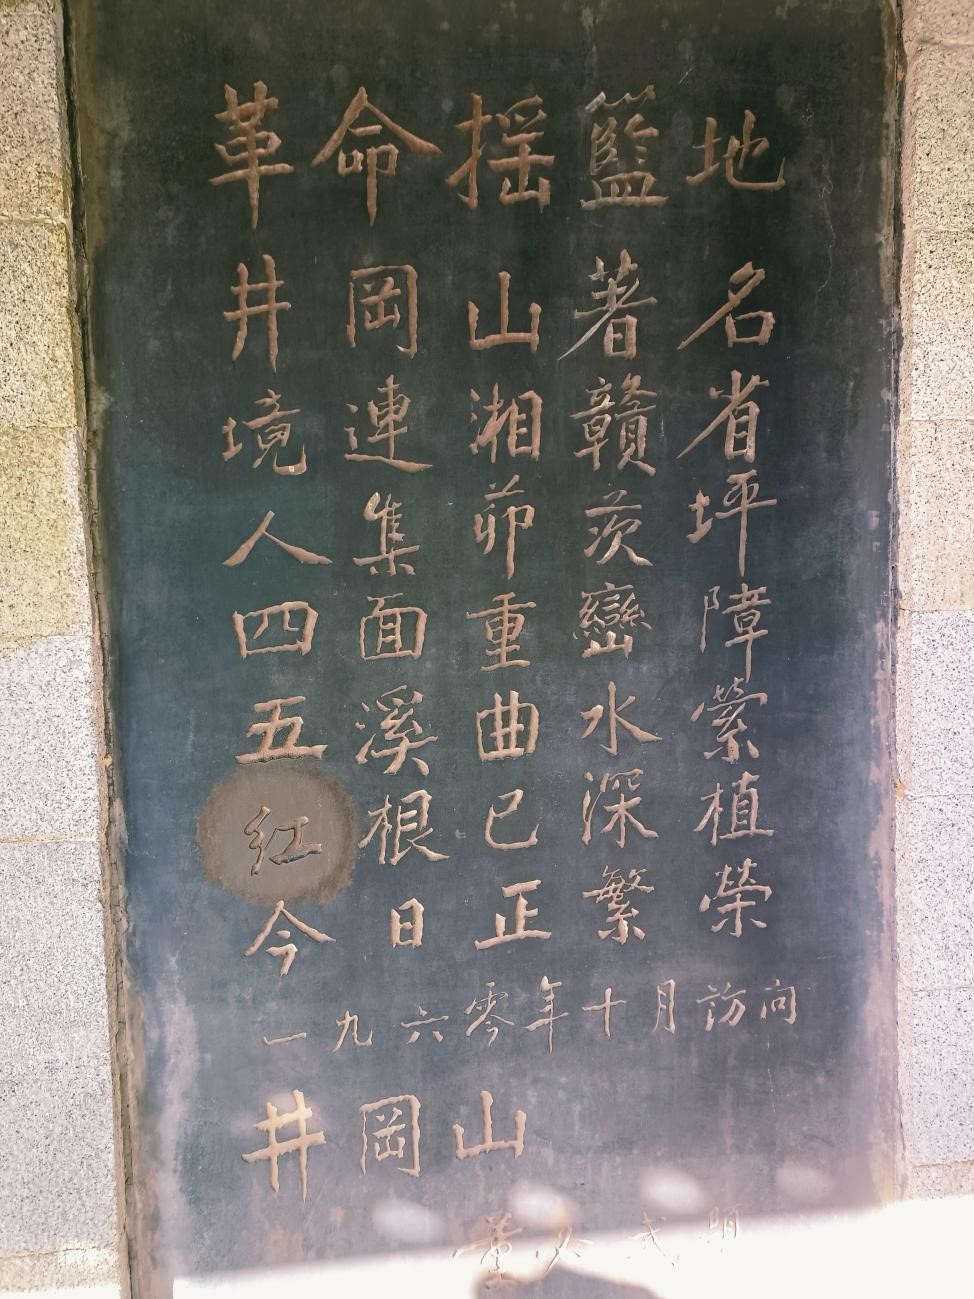 革命摇籃地
井岡山著名
境連湘贛省
人集茆茨坪
四面重巒障
五溪曲水縈
紅根已深植
今日正繁榮
一九六零年十月訪向
井岡山
董必武題